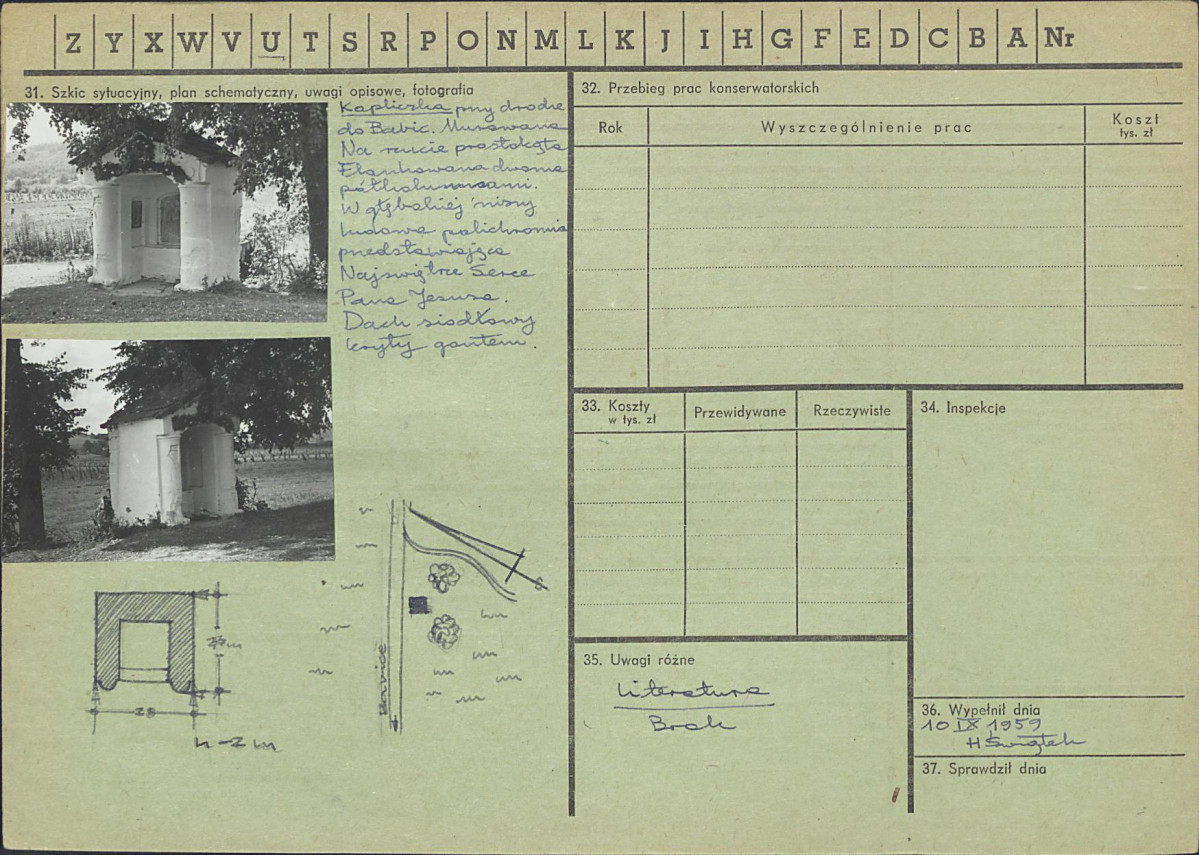 Z Y X W V U T S R P O N M L K J I H G F E D C B A Nr
31. Szkic sytuacyjny, plan schematyczny, uwagi opisowe, fotografia
Kapliczka przy drodze
do Babic. Murowana
Na rzucie prostokąta
Flankowana dwoma
półkolumnami.
W głębokiej niszy
ludowa polichromia
przedstawiająca
Najświętsze Serce
Pana Jezusa.
Dach siodłowy
kryty gontem.
h-2m
32. Przebieg prac konserwatorskich
Rok
Wyszczególnienie prac
Koszt
tys. zł
33. Koszty
w tys. zł
Przewidywane
Rzeczywiste
34. Inspekcje
35. Uwagi różne
Literatura
Brak
36. Wypełnił dnia
10 IX 1959
H Świątek
37. Sprawdził dnia